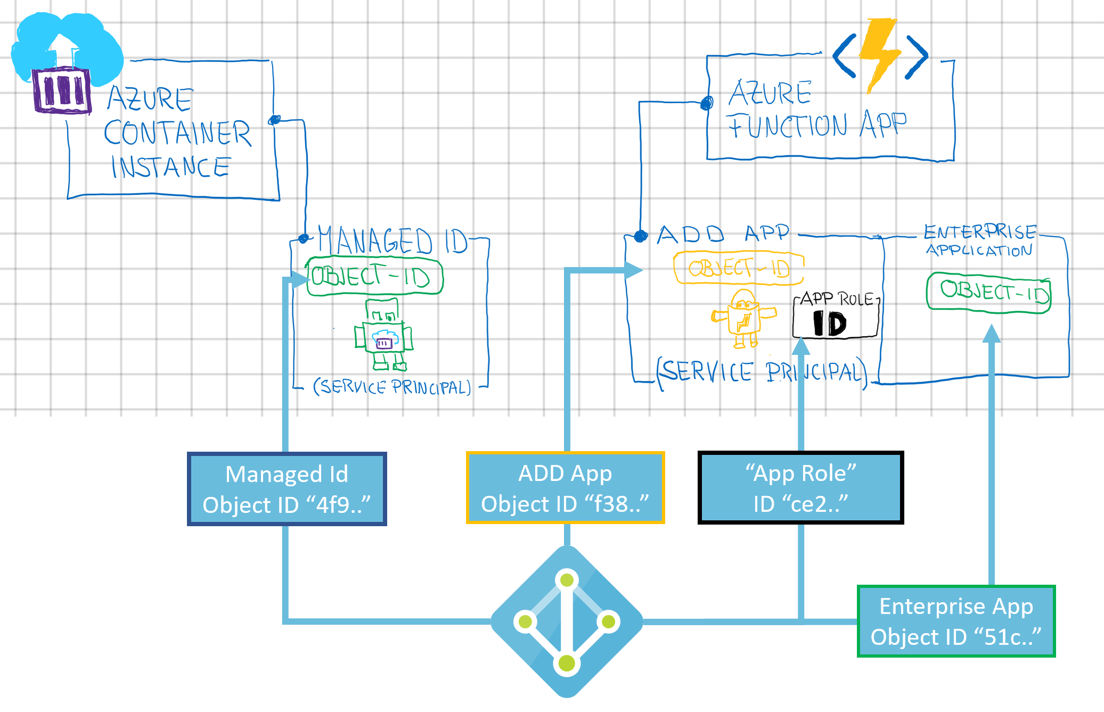 AZURE
CONTAINER
INSTANCE
AZURE
FUNCTION APP
MANAGED ID
OBJECT-ID
(SERVICE PRINCIPAL)
ADD APP
OBJECT-ID
APP ROLE
ID
(SERVICE PRINCIPAL)
ENTERPRISE
APPLICATION
OBJECT-ID
Managed Id
Object ID “4f9..”
ADD App
Object ID “f38..”
“App Role”
ID “ce2..”
Enterprise App
Object ID “51c..”